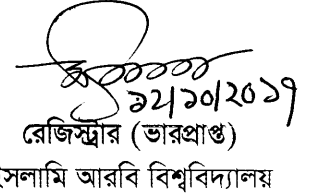 ১২/১০/২০১৭
রেজিস্ট্রার (ভারপ্রাপ্ত)
সলামি আরবি বিশ্ববিদ্যালয়